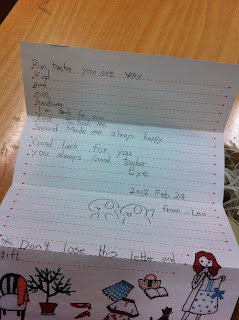 Ben teacher you are very
kind
good
nice
handsome
I'm thank for you
and Made me always happy
Good luck for you
you always Good teacher
Bye
2012. Feb 24
from ~ Leo
※ Don't lose this letter and
gift